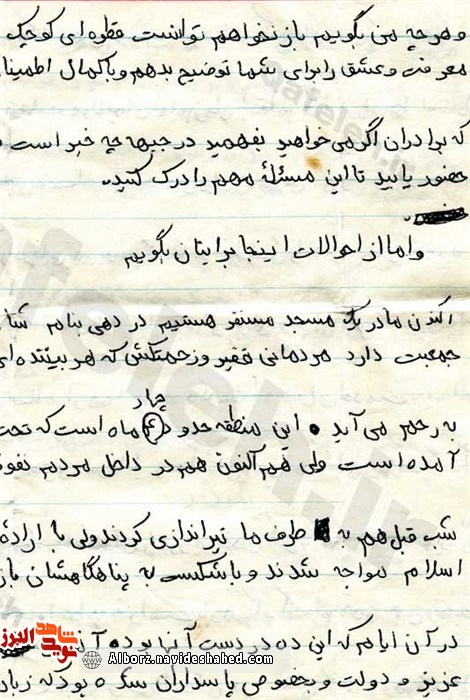 و هر چه من بگویم باز نخواهم توانست قطره ای کوچک
معرفت و عشق را برای شما توضیح بدهم و با کمال اطمینا
که برادران اگر می خواهید بفهمید در جبهه چه خبر است
حضور یابید تا این مسئلهٔ مهم را درک کنید.
و اما از احوالات اینجا برایتان بگویم
اکنون ما در یک مسجد مستقر هستیم در دهی بنام شا
جمعیت دارد مردمانی فقیر و زحمتکش که هر بیننده ای
چهار
به رحم می آید. این منطقه حدود ۴ ماه است که تحت
آمده است ولی هم اکنون هم در داخل مردم نفو
شب قبل هم به طرف ما تیراندازی کردند ولی با اراده
اسلام مواجه شدند و با شکست به پناهگاهشان باز
در آن ایام که این ده در دست آنها بوده
عزیز و دولت و بخصوص پاسداران شده بود که زیاد
شاهد
نوید
البرز
Alborz.navideshahed.com